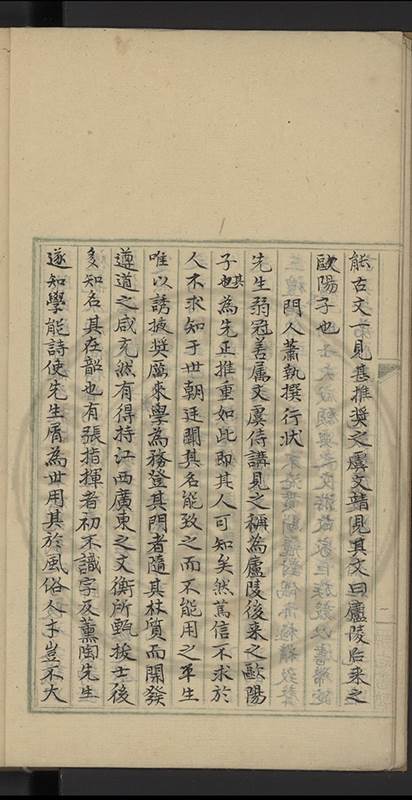 能古文一見甚推奬之虞文靖見其文曰廬陵后来之
歐陽子也
門人蕭執撰行狀
先生弱冠善属文虞侍講見之稱為廬陵後来之歐陽
子也其為先正推重如此即其人可知矣然篤信不求於
人不求知于世朝廷聞其名能致之而不能用之平生
唯以誘掖奬厲来學為務登其門者隨其材質而開發
遵道之咸充然有得持江西廣東之文衡所甄拔士後
多知名其在韶也有張指揮者初不識字及薰陶先生
遂知學能詩使先生得為世用其於風俗人才豈不大